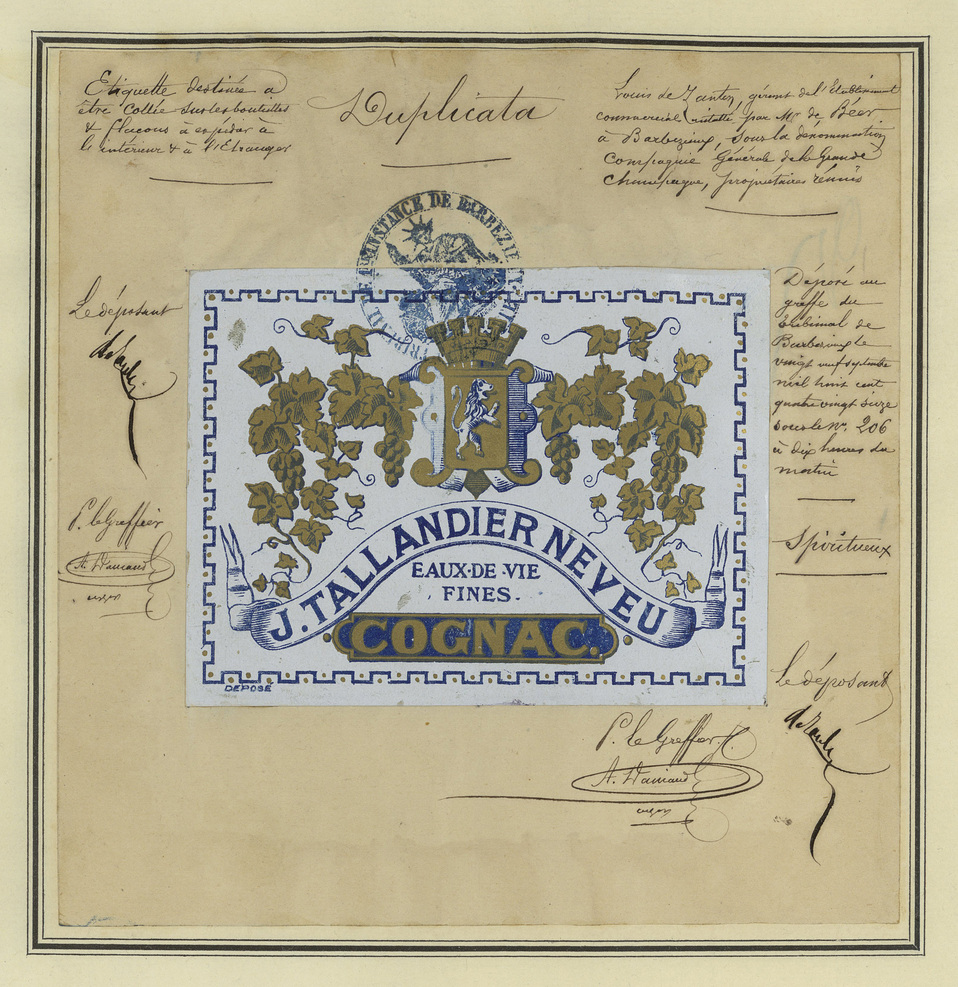 Etiquette destinée à
être collée sur les bouteilles
& flacons à expédier à
l'intérieur & à l'Etranger
Duplicata
Louis de Zantez, gérant de l'établissement
commercial installé par Mr. de Béer
à Barbezieux, sous la dénomination
Compagnie Générale de la Grande
Champagne, propriétaires réunis
INSTANCE DE BARBEZIEUX
Le déposant
P. le Greffier
Déposé au
greffe du
tribunal de
Barbezieux le
vingt neuf septembre
mil huit cent
quatre vingt seize
sous le No. 206
à dix heures du
matin
Spiritueux
J. TALLANDIER NEVEU
EAUX-DE-VIE
FINES.
COGNAC.
DEPOSÉ
Le déposant
P. le Greffier